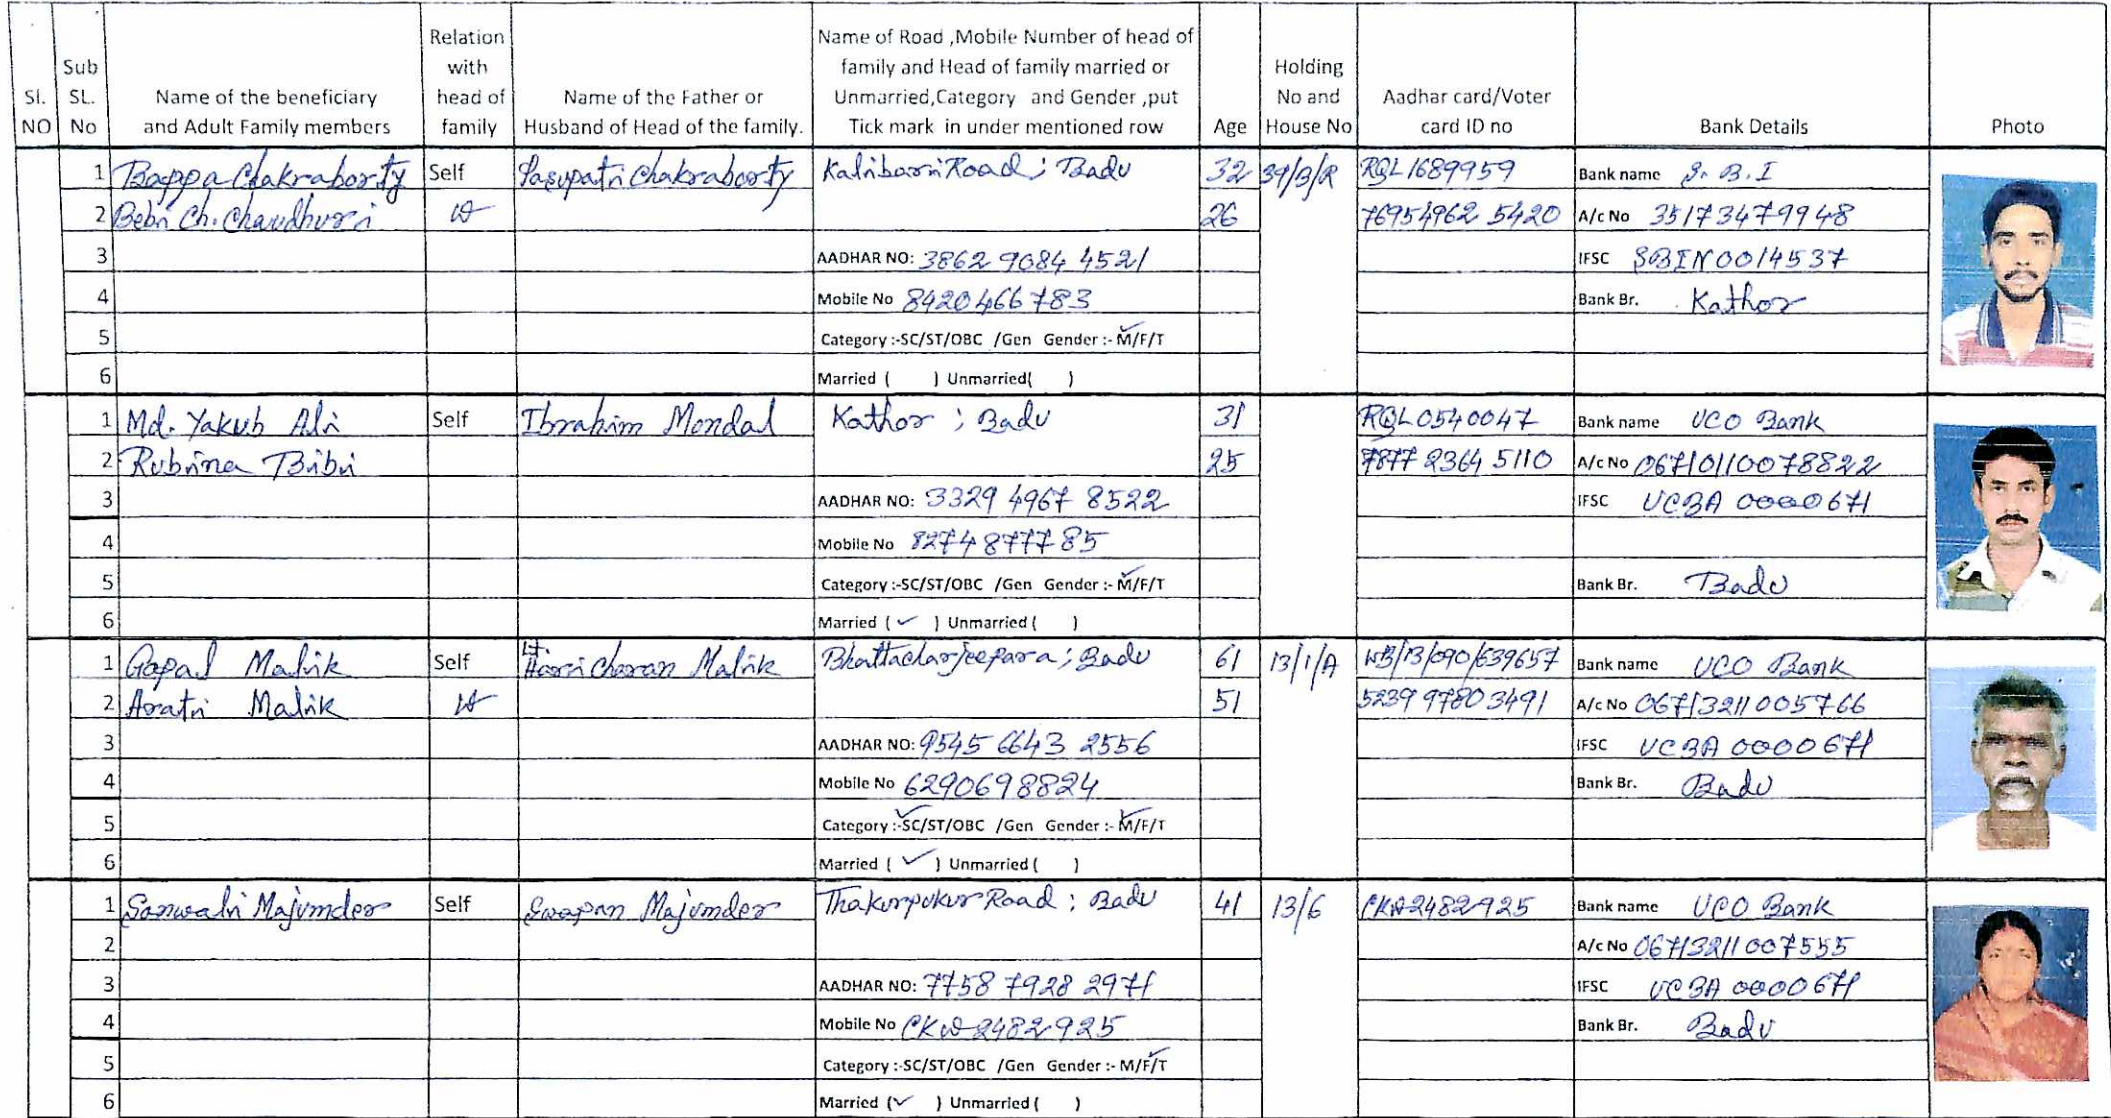 Sl. NO
Sub SL. No
Name of the beneficiary and Adult Family members
Relation with head of family
Name of the Father or Husband of Head of the family.
Name of Road ,Mobile Number of head of family and Head of family married or Unmarried,Category and Gender ,put Tick mark in under mentioned row
Age
Holding No and House No
Aadhar card/Voter card ID no
Bank Details
Photo
1 Bappa Chakraborty Self Pasupati Chakraborty Kalibari Road ; Badu 32 39/B/R RQL1689959 Bank name S.B.I
2 Bebi Ch. Chaudhuri W 26 7695 4962 5420 A/c No 35173479948
3 AADHAR NO: 3862 9084 4521 IFSC SBIN0014537
4 Mobile No 8420466783 Bank Br. Kathor
5 Category :-SC/ST/OBC /Gen Gender :- M/F/T
6 Married ( ) Unmarried( )
1 Md. Yakub Ali Self Ibrahim Mondal Kathor ; Badu 31 RQL0540047 Bank name UCO Bank
2 Rubina Bibi 25 7877 2364 5110 A/c No 06710110078822
3 AADHAR NO: 3329 4967 8522 IFSC UCBA 0000671
4 Mobile No 8274877785
5 Category :-SC/ST/OBC /Gen Gender :- M/F/T Bank Br. Badu
6 Married ( ✓ ) Unmarried ( )
1 Gopal Malik Self Lt. Hari Charan Malik Bhattacharjeepara ; Badu 61 13/1/A WB/13/090/639657 Bank name UCO Bank
2 Arati Malik W 51 5239 9780 3491 A/c No 06713211005766
3 AADHAR NO: 9545 6643 2556 IFSC UCBA 0000671
4 Mobile No 6290698824 Bank Br. Badu
5 Category :-SC/ST/OBC /Gen Gender :- M/F/T
6 Married ( ✓ ) Unmarried ( )
1 Majumder Self Swapan Majumder Thakurpukur Road ; Badu 41 13/6 CKW2482925 Bank name UCO Bank
2 A/c No 06713211007555
3 AADHAR NO: 7758 7928 2971 IFSC UCBA 0000671
4 Mobile No CKW2482925 Bank Br. Badu
5 Category :-SC/ST/OBC /Gen Gender :- M/F/T
6 Married (✓ ) Unmarried ( )